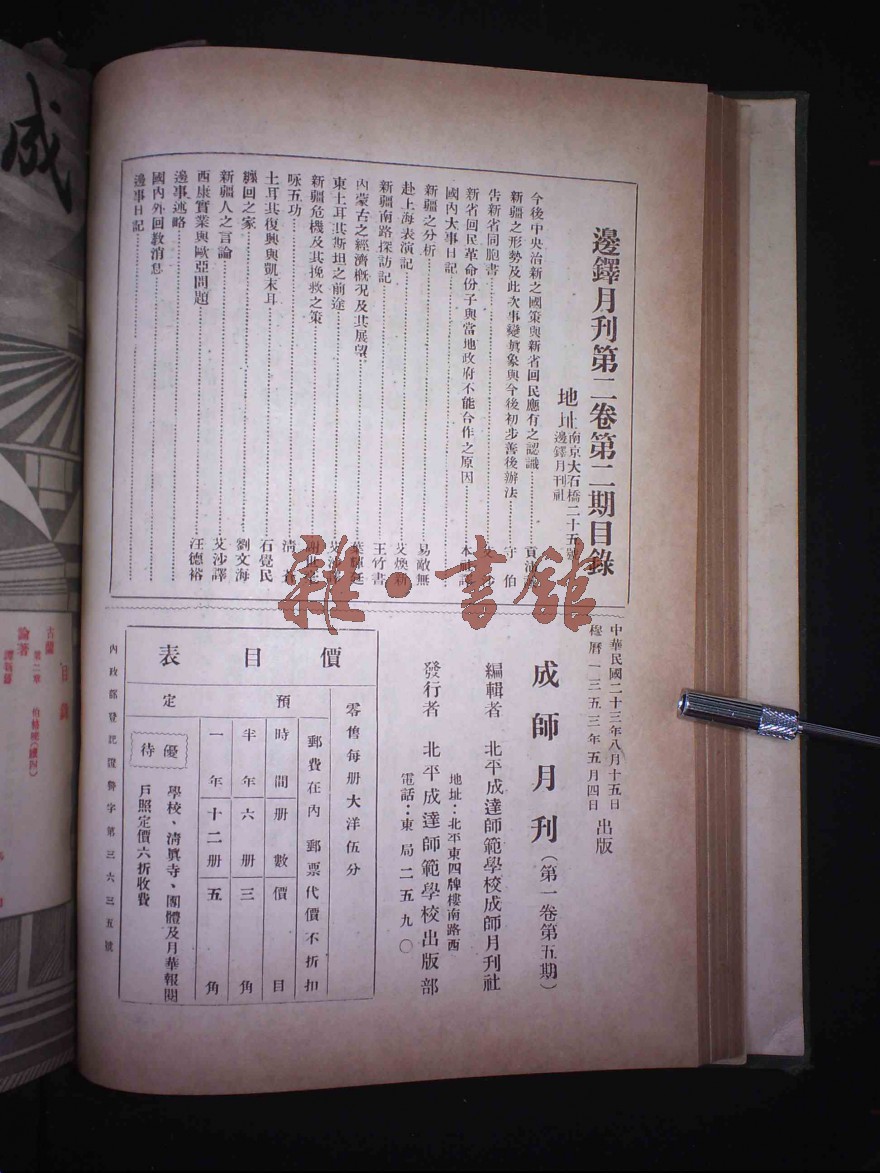 邊鐸月刊第二卷第二期目錄
地址南京大石橋二十五號
邊鐸月刊社
今後中央治新之國策與新省回民應有之認識
新疆之形勢及此次事變眞象與今後初步善後辦法 守伯
告新省同胞書
新省回民革命份子與當地政府不能合作之原因
國內大事日記
新疆之分析 易敵無
赴上海表演記 艾煥新
新疆南路探訪記 王竹書
內蒙古之經濟概况及其展望
東土耳其斯坦之前途
新疆危機及其挽救之策
咏五功
土耳其復興與凱末耳 石覺民
纏回之家 劉文海
新疆人之言論 艾沙譯
西康實業與歐亞問題 汪德裕
邊事述略
國內外回教消息
邊事日記
中華民國二十三年八月十五日
穆曆一三五三年五月四日
出版
成師月刊(第一卷第五期)
編輯者 北平成達師範學校成師月刊社
地址:北平東四牌樓南路西
發行者 北平成達師範學校出版部
電話:東局二五九〇
價目表
零售每册大洋伍分
預定
郵費在內 郵票代價不折扣
時間 册數 價目
半年 六册 三角
一年 十二册 五角
優待
學校、清眞寺、團體及月華報閱
戶照定價六折收費
內政部登記證警字第三六三五號
雜·書館
成
目錄
古蘭
第二章
論著